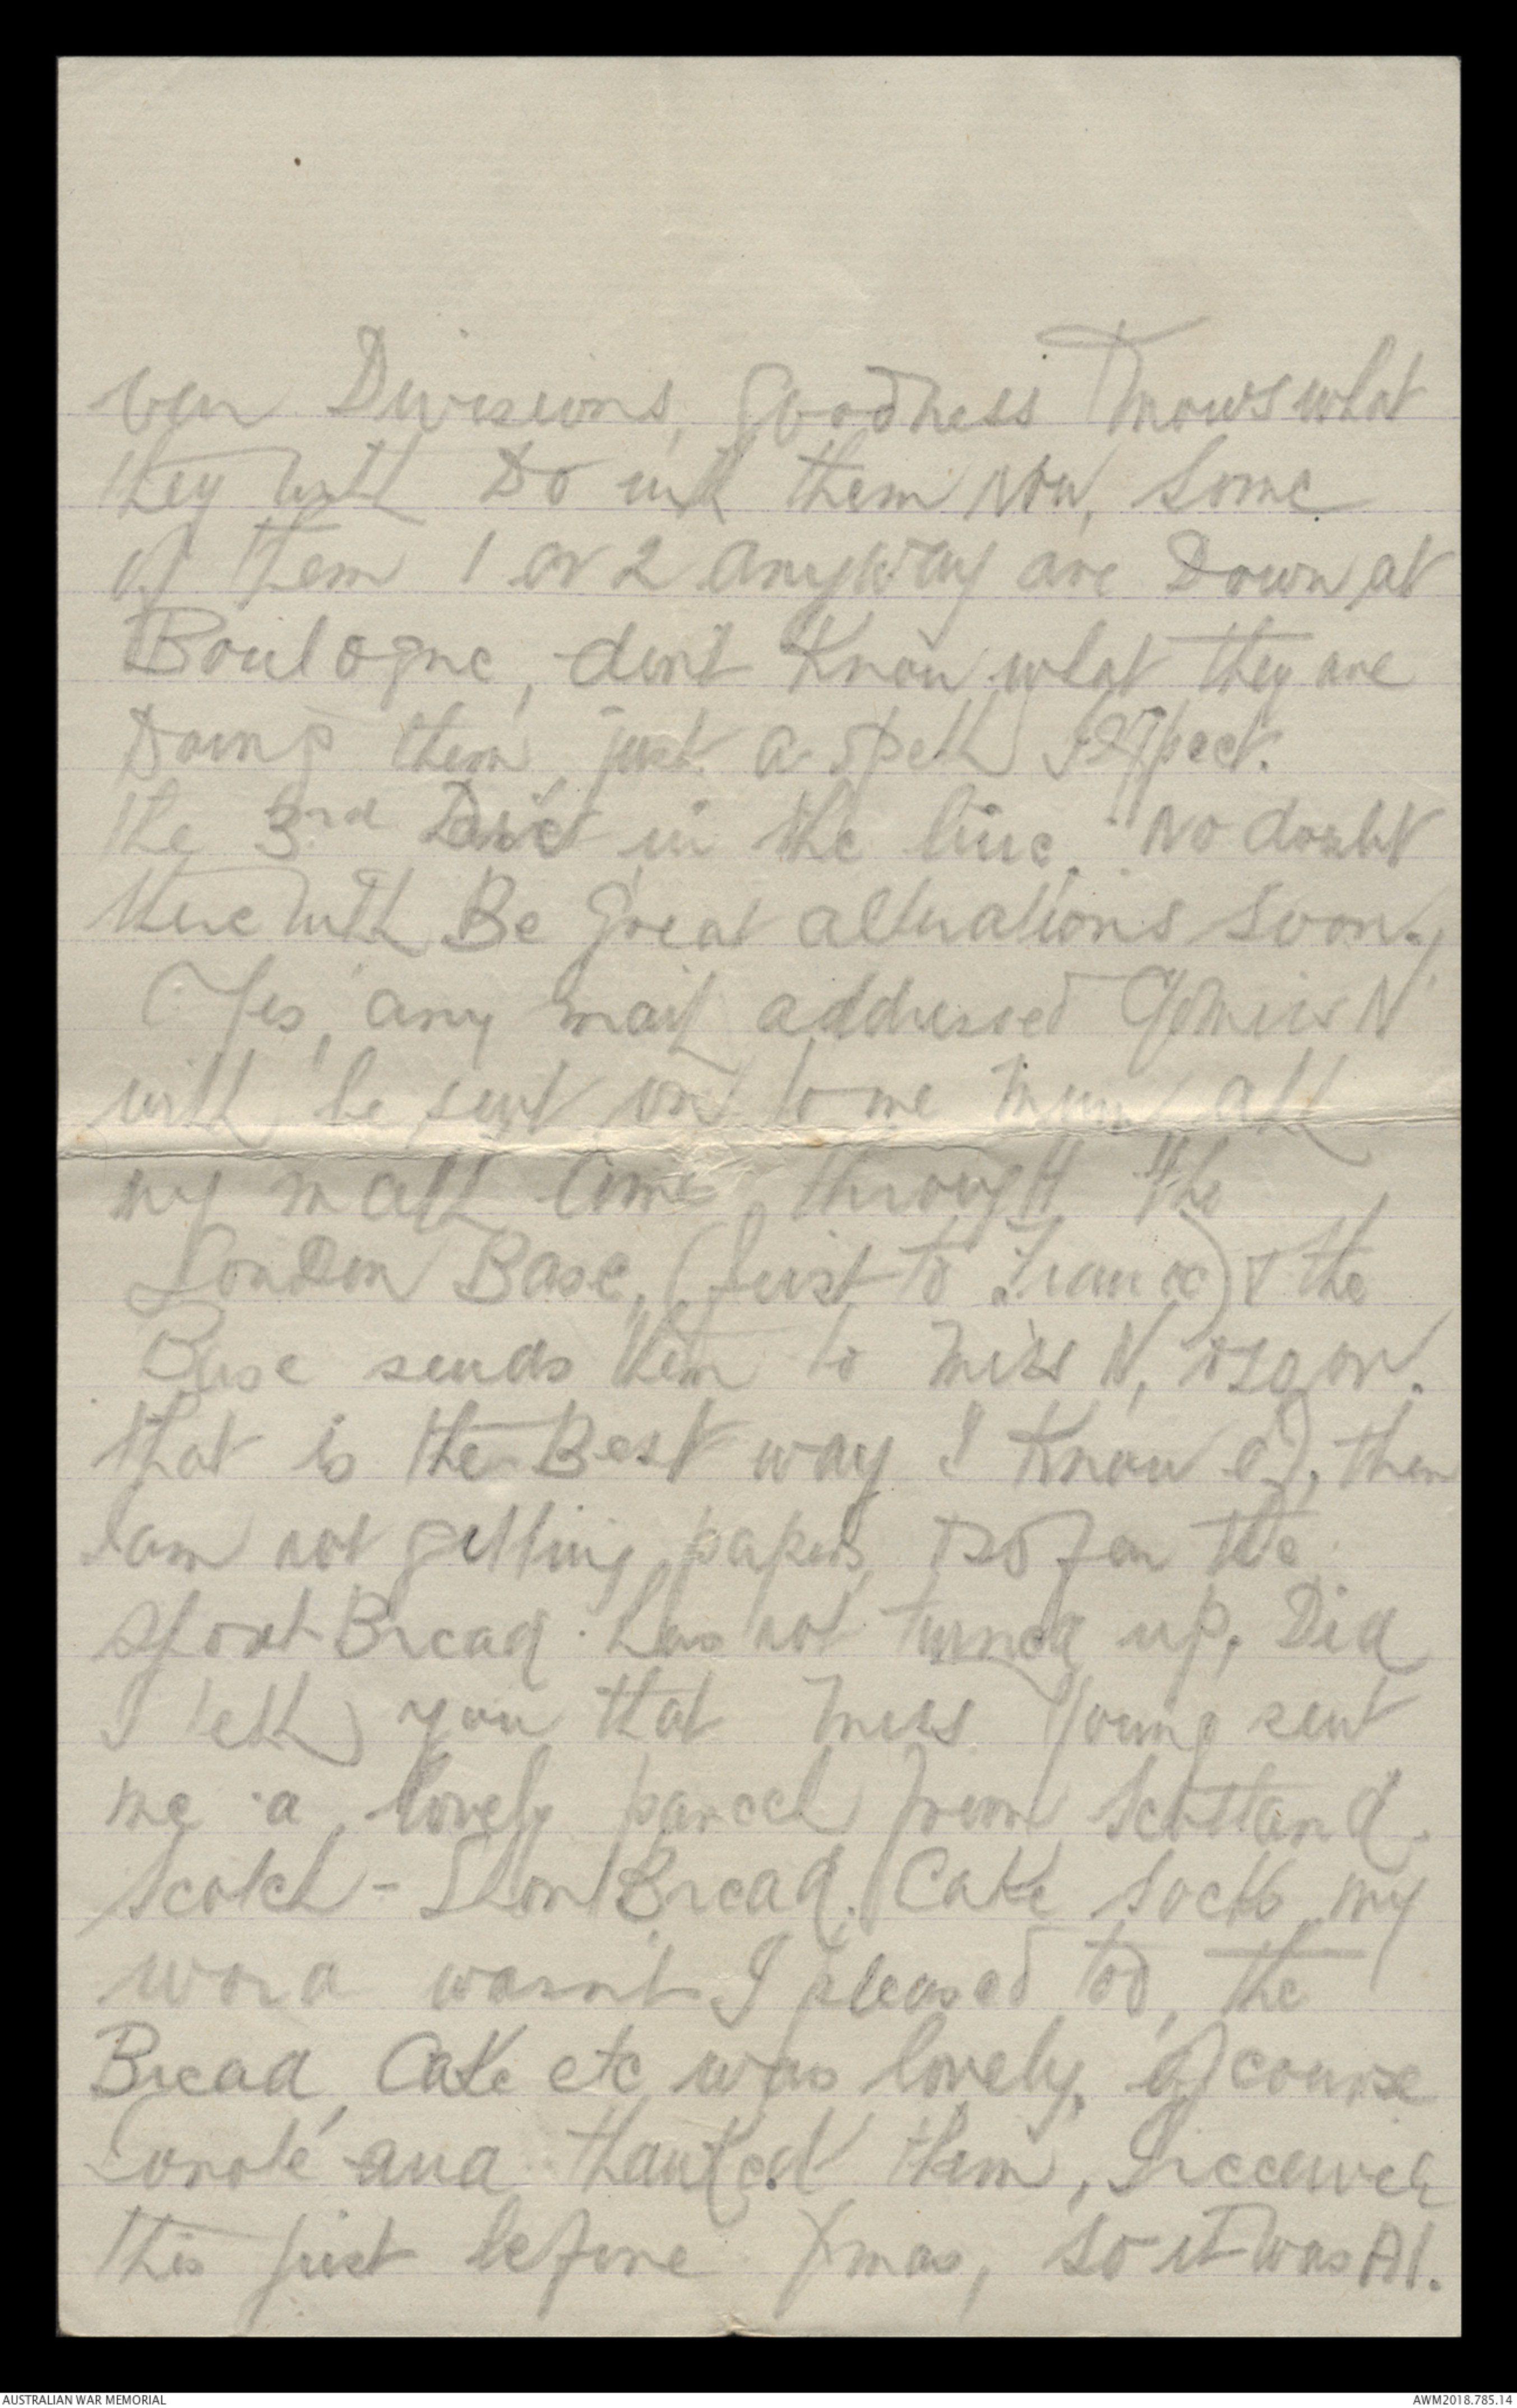 Divisions, Goodness Knows what
they will Do with them Now, Some
of them 1 or 2 anyway are Down at
Boulogne, don't Know what they are
Doing them, just a spell I expect.
the 3rd in the line. No doubt
there will Be Great alterations soon.
Yes, any mail addressed C/o Miss N
will be sent on to me Mum, all
my mail comes through the
London Base, (first to France) & the
Base sends them to Miss N,
that is the Best way I Know of, then
I am not getting papers, the
short Bread has not turned up, Did
I tell you that Miss Young sent
me a lovely parcel from Scotland.
Scotch - ShortBread. Cake socks my
word wasn't I pleased too, the
Bread, Cake etc was lovely, of course
I wrote and thanked them, I received
this just before Xmas, So it was A1.
AUSTRALIAN WAR MEMORIAL
AWM2018.785.14